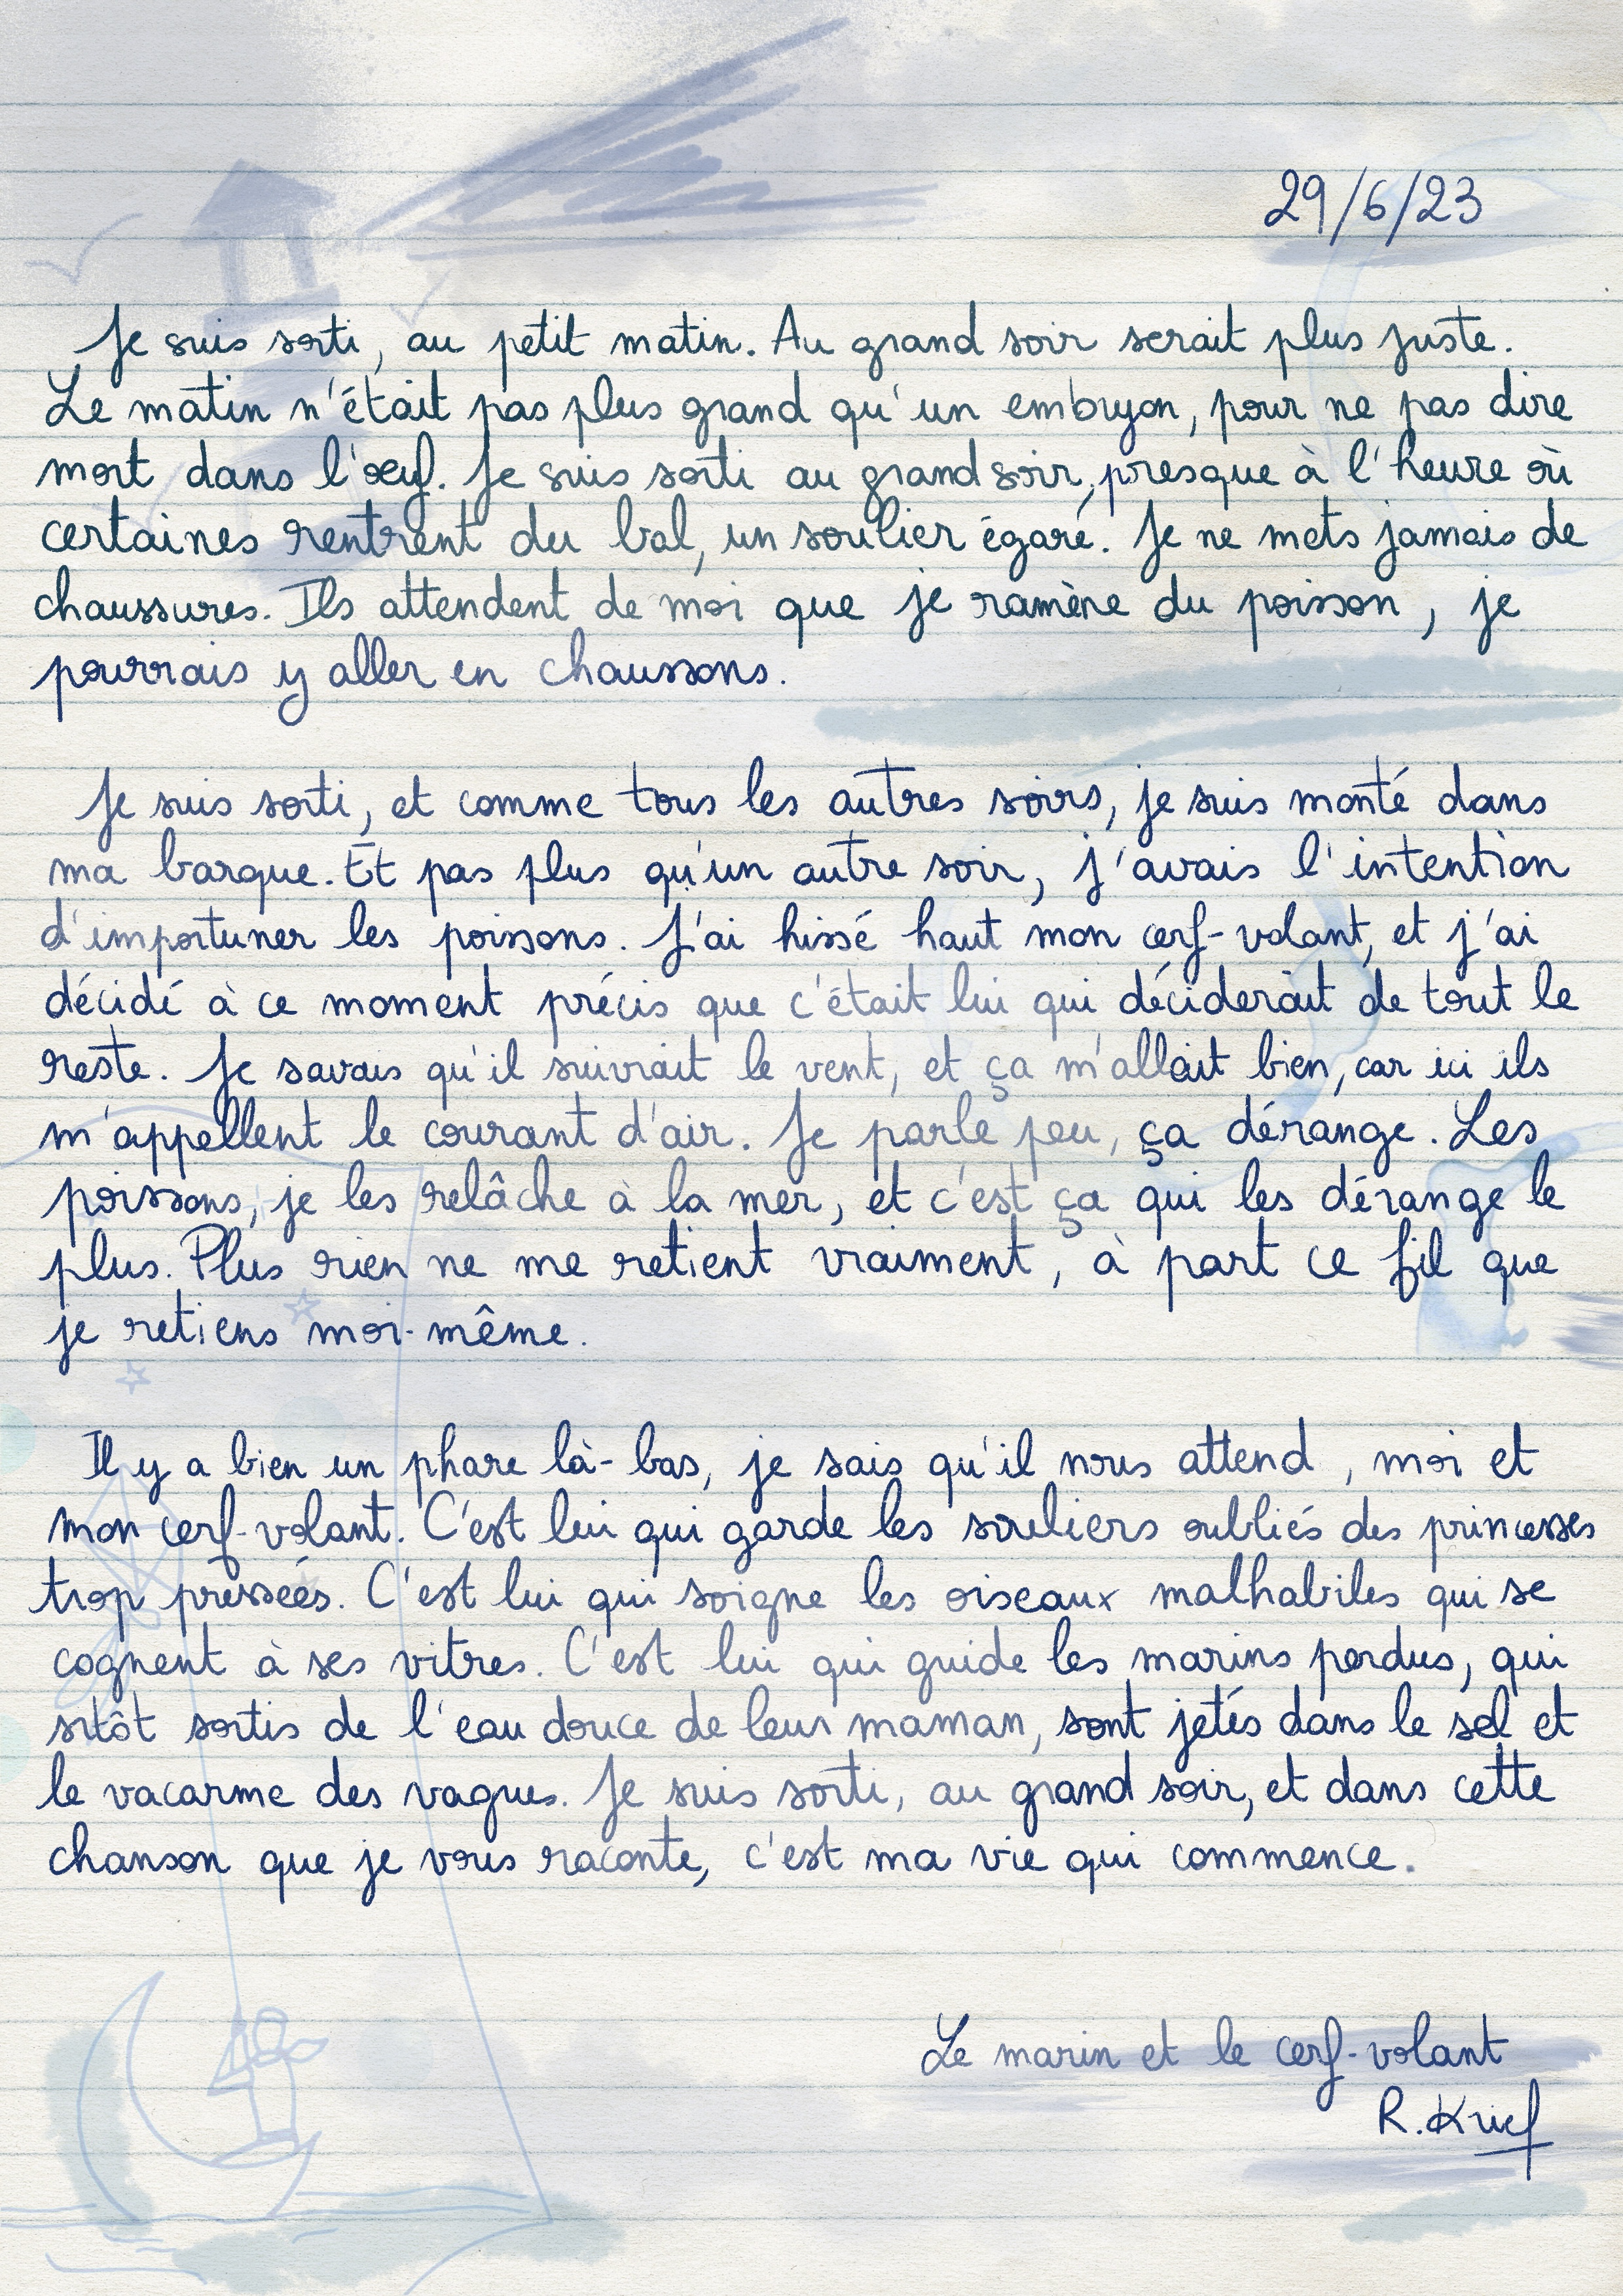 29/6/23
Je suis sorti, au petit matin. Au grand soir serait plus juste.
Le matin n'était pas plus grand qu'un embryon, pour ne pas dire
mort dans l'œuf. Je suis sorti au grand soir, presque à l'heure où
certaines rentrent du bal, un soulier égaré. Je ne mets jamais de
chaussures. Ils attendent de moi que je ramène du poisson, je
pourrais y aller en chaussons.
Je suis sorti, et comme tous les autres soirs, je suis monté dans
ma barque. Et pas plus qu'un autre soir, j'avais l'intention
d'importuner les poissons. J'ai hissé haut mon cerf-volant, et j'ai
décidé à ce moment précis que c'était lui qui déciderait de tout le
reste. Je savais qu'il suivrait le vent, et ça m'allait bien, car ici ils
m'appellent le courant d'air. Je parle peu, ça dérange. Les
poissons, je les relâche à la mer, et c'est ça qui les dérange le
plus. Plus rien ne me retient vraiment, à part ce fil que
je retiens moi-même.
Il y a bien un phare là-bas, je sais qu'il nous attend, moi et
mon cerf-volant. C'est lui qui garde les souliers oubliés des princesses
trop pressées. C'est lui qui soigne les oiseaux malhabiles qui se
cognent à ses vitres. C'est lui qui guide les marins perdus, qui
sitôt sortis de l'eau douce de leur maman, sont jetés dans le sel et
le vacarme des vagues. Je suis sorti, au grand soir, et dans cette
chanson que je vous raconte, c'est ma vie qui commence.
Le marin et le cerf-volant
R. Krief